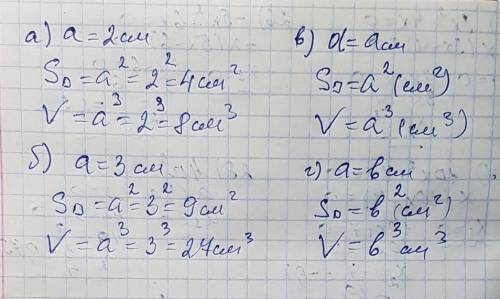 а) a = 2 см
S□ = a² = 2² = 4 см²
V = a³ = 2³ = 8 см³
б) a = 3 см
S□ = a² = 3² = 9 см²
V = a³ = 3³ = 27 см³
в) a = a см
S□ = a² (см²)
V = a³ (см³)
г) a = b см
S□ = b² (см²)
V = b³ см³